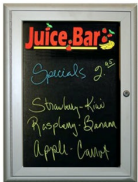 Juice Bar
Specials 2.95
Strawberry - Kiwi
Raspberry - Banana
Apple - Carrot